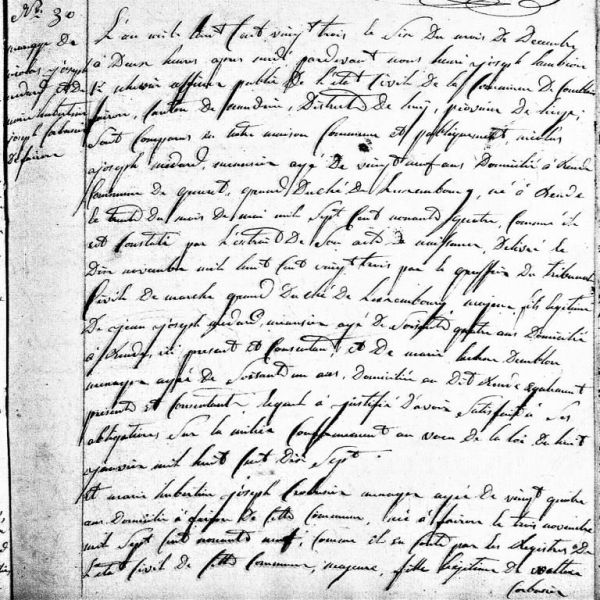 N°. 30
mariage de
nicolas joseph
médard et de
marie hubertine
joseph Corbusier
de fairon
L'an mil huit Cent vingt trois le Six Du mois De Decembre
à Deux heures après midi pardevant nous henri joseph
officier public De L'état Civile De la Commune De Comblain
fairon, Canton de nandrin, District De huy, province De Liege,
Sont Comparus en notre maison Commune et publiquement, nicolas
joseph médard, menusier agé De vingt neuf ans Domicilié à
Commune de grand Duché de Luxembourg, né à
le trente du mois de mai mil Sept Cent nonante quatre, Comme il
est Constaté par L'extrait De Son acte De naissance, Délivré le
Dix novembre mil huit Cent vingt trois par le greffier du tribunal
Civile De marche grand Duché de Luxembourg majeur, fils légitime
De joseph médard, menusier agé De Soixante quatre ans Domicilié
à ici present et Consentant et De marie
menagere agée de Soixante un ans, Domiciliée au Dit également
presente et Consentante lequel à justifié D'avoir Satisfait à Ses
obligations Sur la milice Conformement au vœu De la loi De huit
janvier mil huit Cent Dix Sept.
et marie hubertine joseph Corbusier menagere agée De vingt quatre
ans Domiciliée à fairon De Cette Commune, née à fairon le trois novembre
mil Sept Cent nonante neuf, Comme il est par les Registres De
L'état Civil De Cette Commune, majeure, fille légitime De
Corbusier